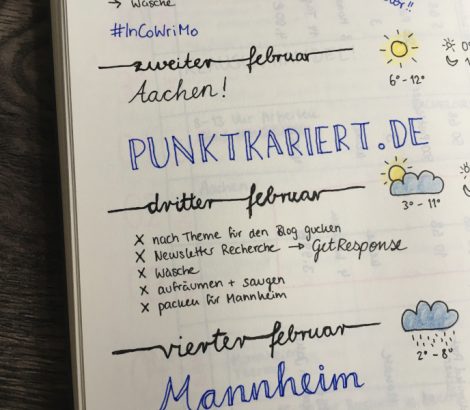 → Wäsche
#InCoWriMo
zweiter februar
6° - 12°
Aachen!
PUNKTKARIERT.DE
dritter februar
3° - 11°
x nach Theme für den Blog gucken
x Newsletter Recherche → GetResponse
x Wäsche
x aufräumen + saugen
x packen für Mannheim
vierter februar
2° - 8°
Mannheim